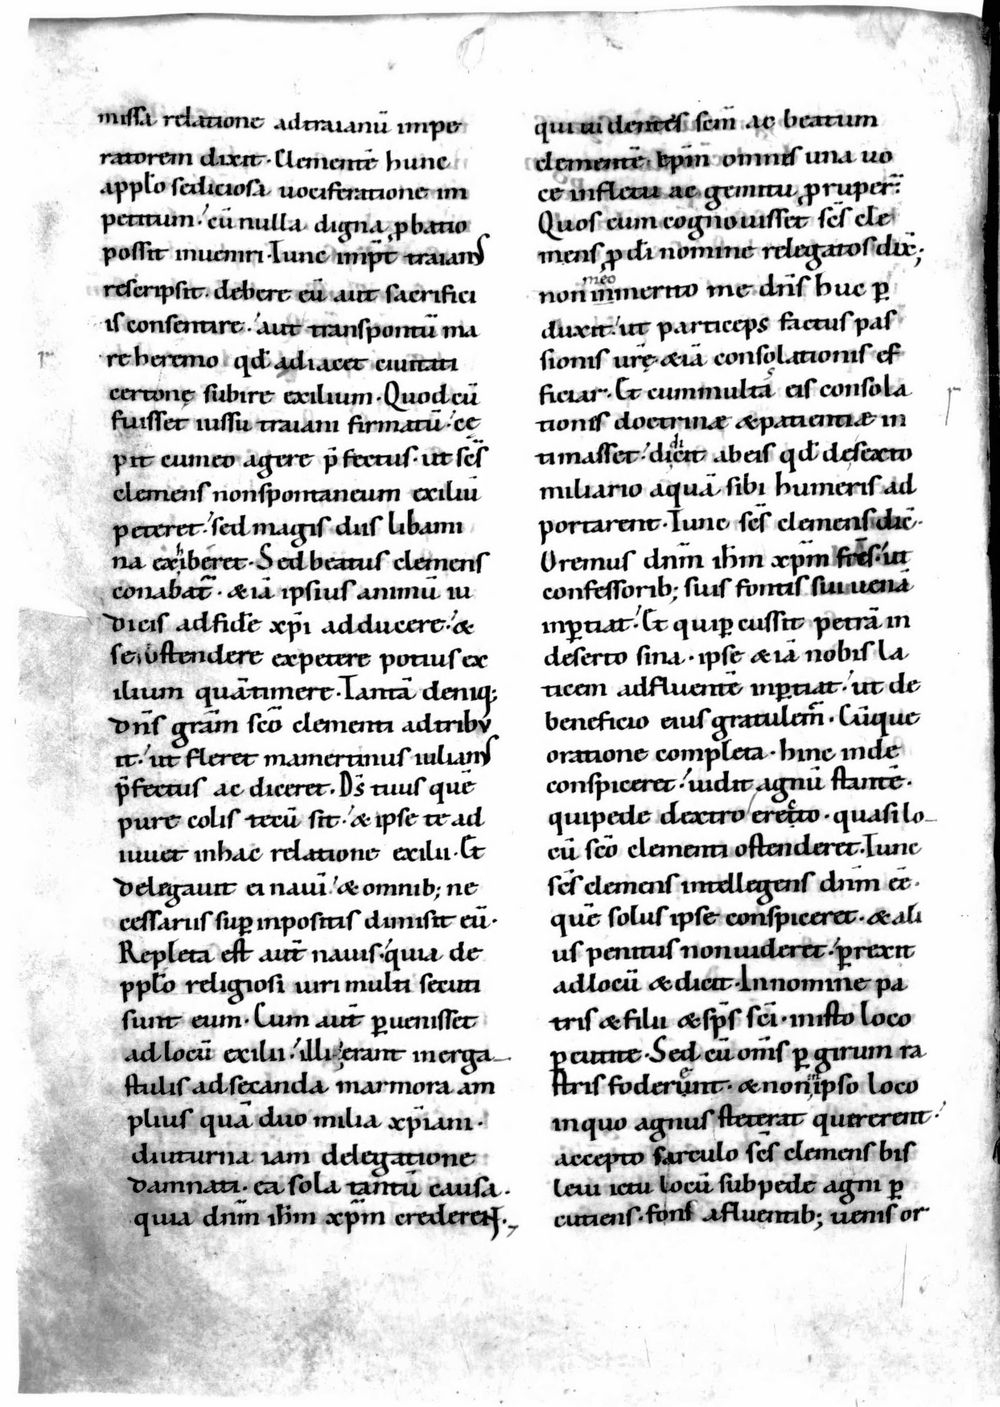 missa relatione adtraianū impe
ratorem dixit. Clementē hunc
applo sediciosa uociferatione im
petitum. cū nulla digna ꝓbatio
possit inueniri. Tunc impr̄ traianus
rescripsit. debere eū aut sacrifici
is consentire. aut transpontū ma
re heremo qd̄ adiacet ciuitati
certonę subire exilium. Quodcū
fuisset iussu traiani firmatū. cę
pit cumeo agere p̄fectus. ut sc̄s
clemens nonspontaneum exiliū
peteret. sed magis diis libami
na exhiberet. Sed beatus clemens
conabat̄. &iā ipsius animū iu
dicis adfidē xp̄i adducere. &
se ostendere expetere potius ex
ilium quātimere. Tantā deniq;
dn̄s grām sc̄o clementi adtribu
it. ut fleret mamertinus iulianus
p̄fectus ac diceret. Ds̄ tuus quē
pure colis tecū sit. & ipse te ad
iuuet inhac relatione exilii. Et
delegauit ei nauī. &omnib; ne
cessariis suꝑ inpositis dimisit eū.
Repleta est aut̄ nauis. quia de
pplo religiosi uiri multi secuti
sunt eum. Cum aut̄ ꝑuenisset
ad locū exilii. illi erant inerga
stulis adsecanda marmora am
plius quā duo milia xp̄iani.
diuturna iam delegatione
damnati. ea sola tantū causa.
quia dn̄m ihm̄ xp̄m crederent.
qui uidentes sc̄m ac beatum
clementē. epm̄ omnes una uo
ce infletu ac gemitu ꝓruper̄.
Quos cum cognouisset sc̄s cle
mens ꝓ di nomine relegatos dix̄;
non inmerito meo me dn̄s huc ꝑ
duxit. ut particeps factus pas
sionis ur̄ę &iā consolationis ef
ficiar. Et cummulta eis consola
tionis doctrinæ &patientiæ in
timasset. dicit abeis qd̄ desexto
miliario aquā sibi humeris ad
portarent. Tunc sc̄s clemens dic̄.
Oremus dn̄m ihm̄ xp̄m fr̄es. ut
confessorib; suis fontis sui uenā
inꝑtiat. Et qui ꝑcussit petrā in
deserto sina. ipse &iā nobis la
ticem adfluentē inꝑtiat. ut de
beneficio eius gratulem̄. Cūque
oratione completa. hinc inde
conspiceret. uidit agnū stantē.
quipede dextro erecto. quasi lo
cū sc̄o clementi ostenderet. Tunc
sc̄s clemens intellegens dn̄m eē.
quē solus ipse conspiceret. &ali
us penitus nonuideret. ꝑrexit
adlocū &dicit. Innomine pa
tris &filii &sp̄s sc̄i. inisto loco
ꝑcutite. Sed cū om̄s ꝑ girum ra
stris foderent. &non in ipso loco
inquo agnus steterat quererent.
accepto sarculo sc̄s clemens bis
leui ictu locū subpede agni ꝑ
cutiens. fons afluentib; uenis or